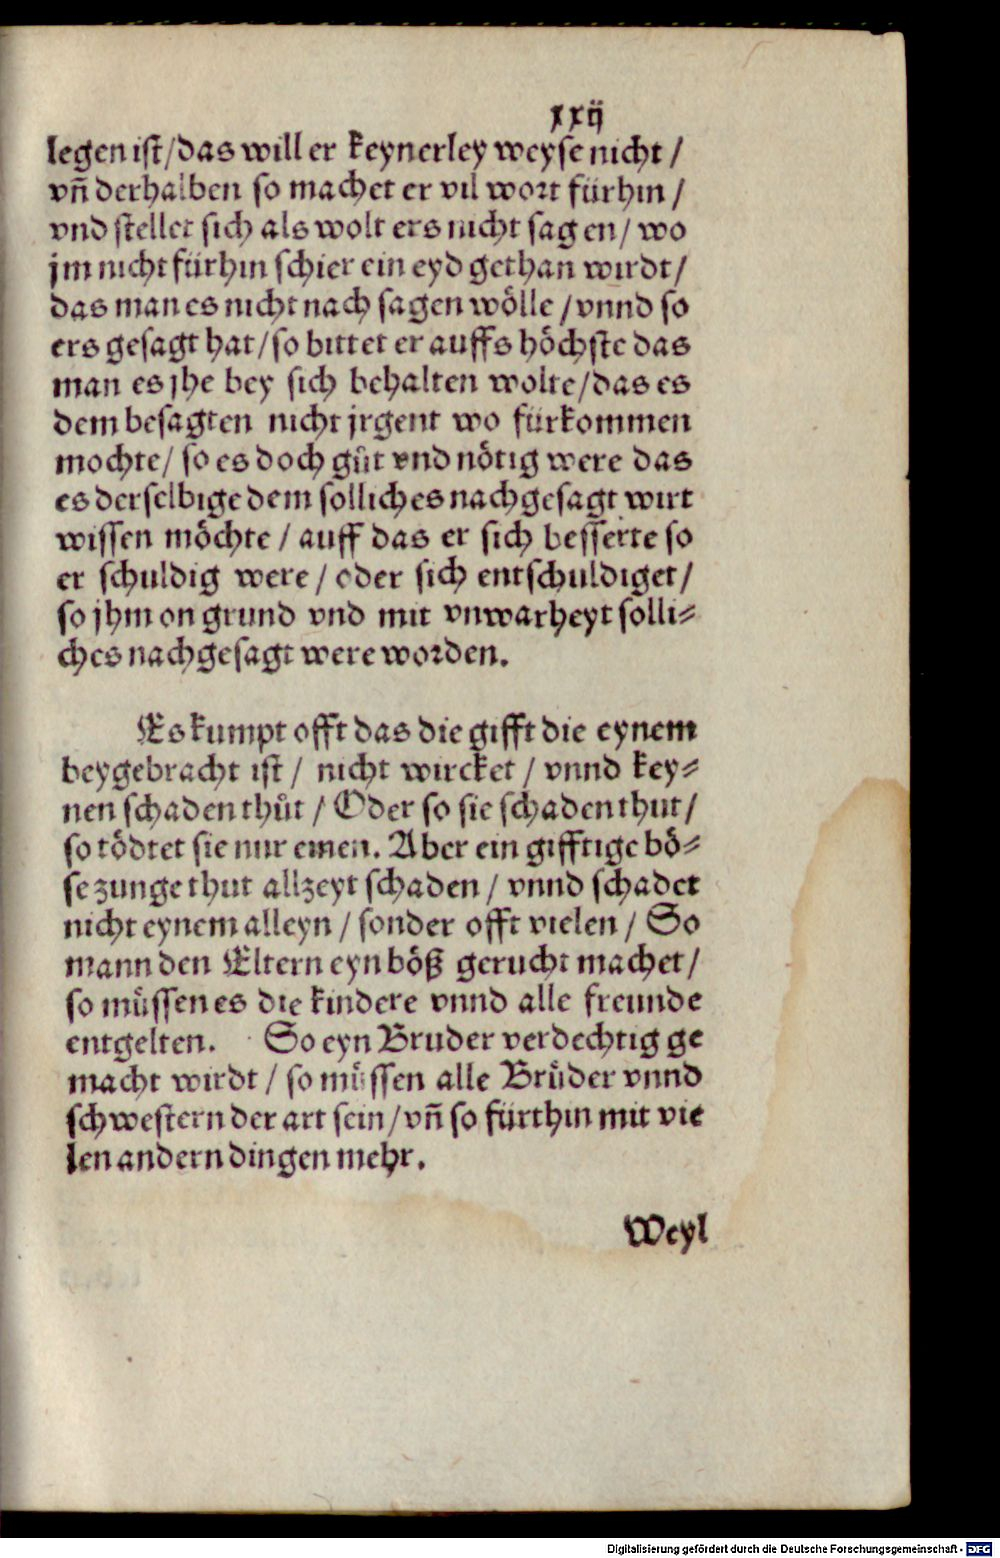 xxij
legen ist/das will er keynerley weyse nicht /
vñ derhalben so machet er vil wort fürhin /
vnd stellet sich als wolt ers nicht sagen/ wo
jm nicht fürhin schier ein eyd gethan wirdt/
das man es nicht nach sagen wölle /vnnd so
ers gesagt hat/so bittet er auffs höchste das
man es jhe bey sich behalten wolte/das es
dem besagten nicht jrgent wo fürkommen
mochte/ so es doch gůt vnd nötig were das
es derselbige dem solliches nachgesagt wirt
wissen möchte / auff das er sich besserte so
er schuldig were / oder sich entschuldiget/
so jhm on grund vnd mit vnwarheyt solli⸗
ches nachgesagt were worden.
Es kumpt offt das die gifft die eynem
beygebracht ist / nicht wircket / vnnd key⸗
nen schaden thůt / Oder so sie schaden thut/
so tödtet sie nur einen. Aber ein gifftige bö⸗
se zunge thut allzeyt schaden / vnnd schadet
nicht eynem alleyn / sonder offt vielen / So
mann den Eltern eyn böß gerucht machet/
so můssen es die kindere vnnd alle freunde
entgelten. So eyn Bruder verdechtig ge
macht wirdt / so můssen alle Brůder vnnd
schwestern der art sein/vñ so fürthin mit vie
len andern dingen mehr.
Weyl
Digitalisierung gefördert durch die Deutsche Forschungsgemeinschaft - DFG